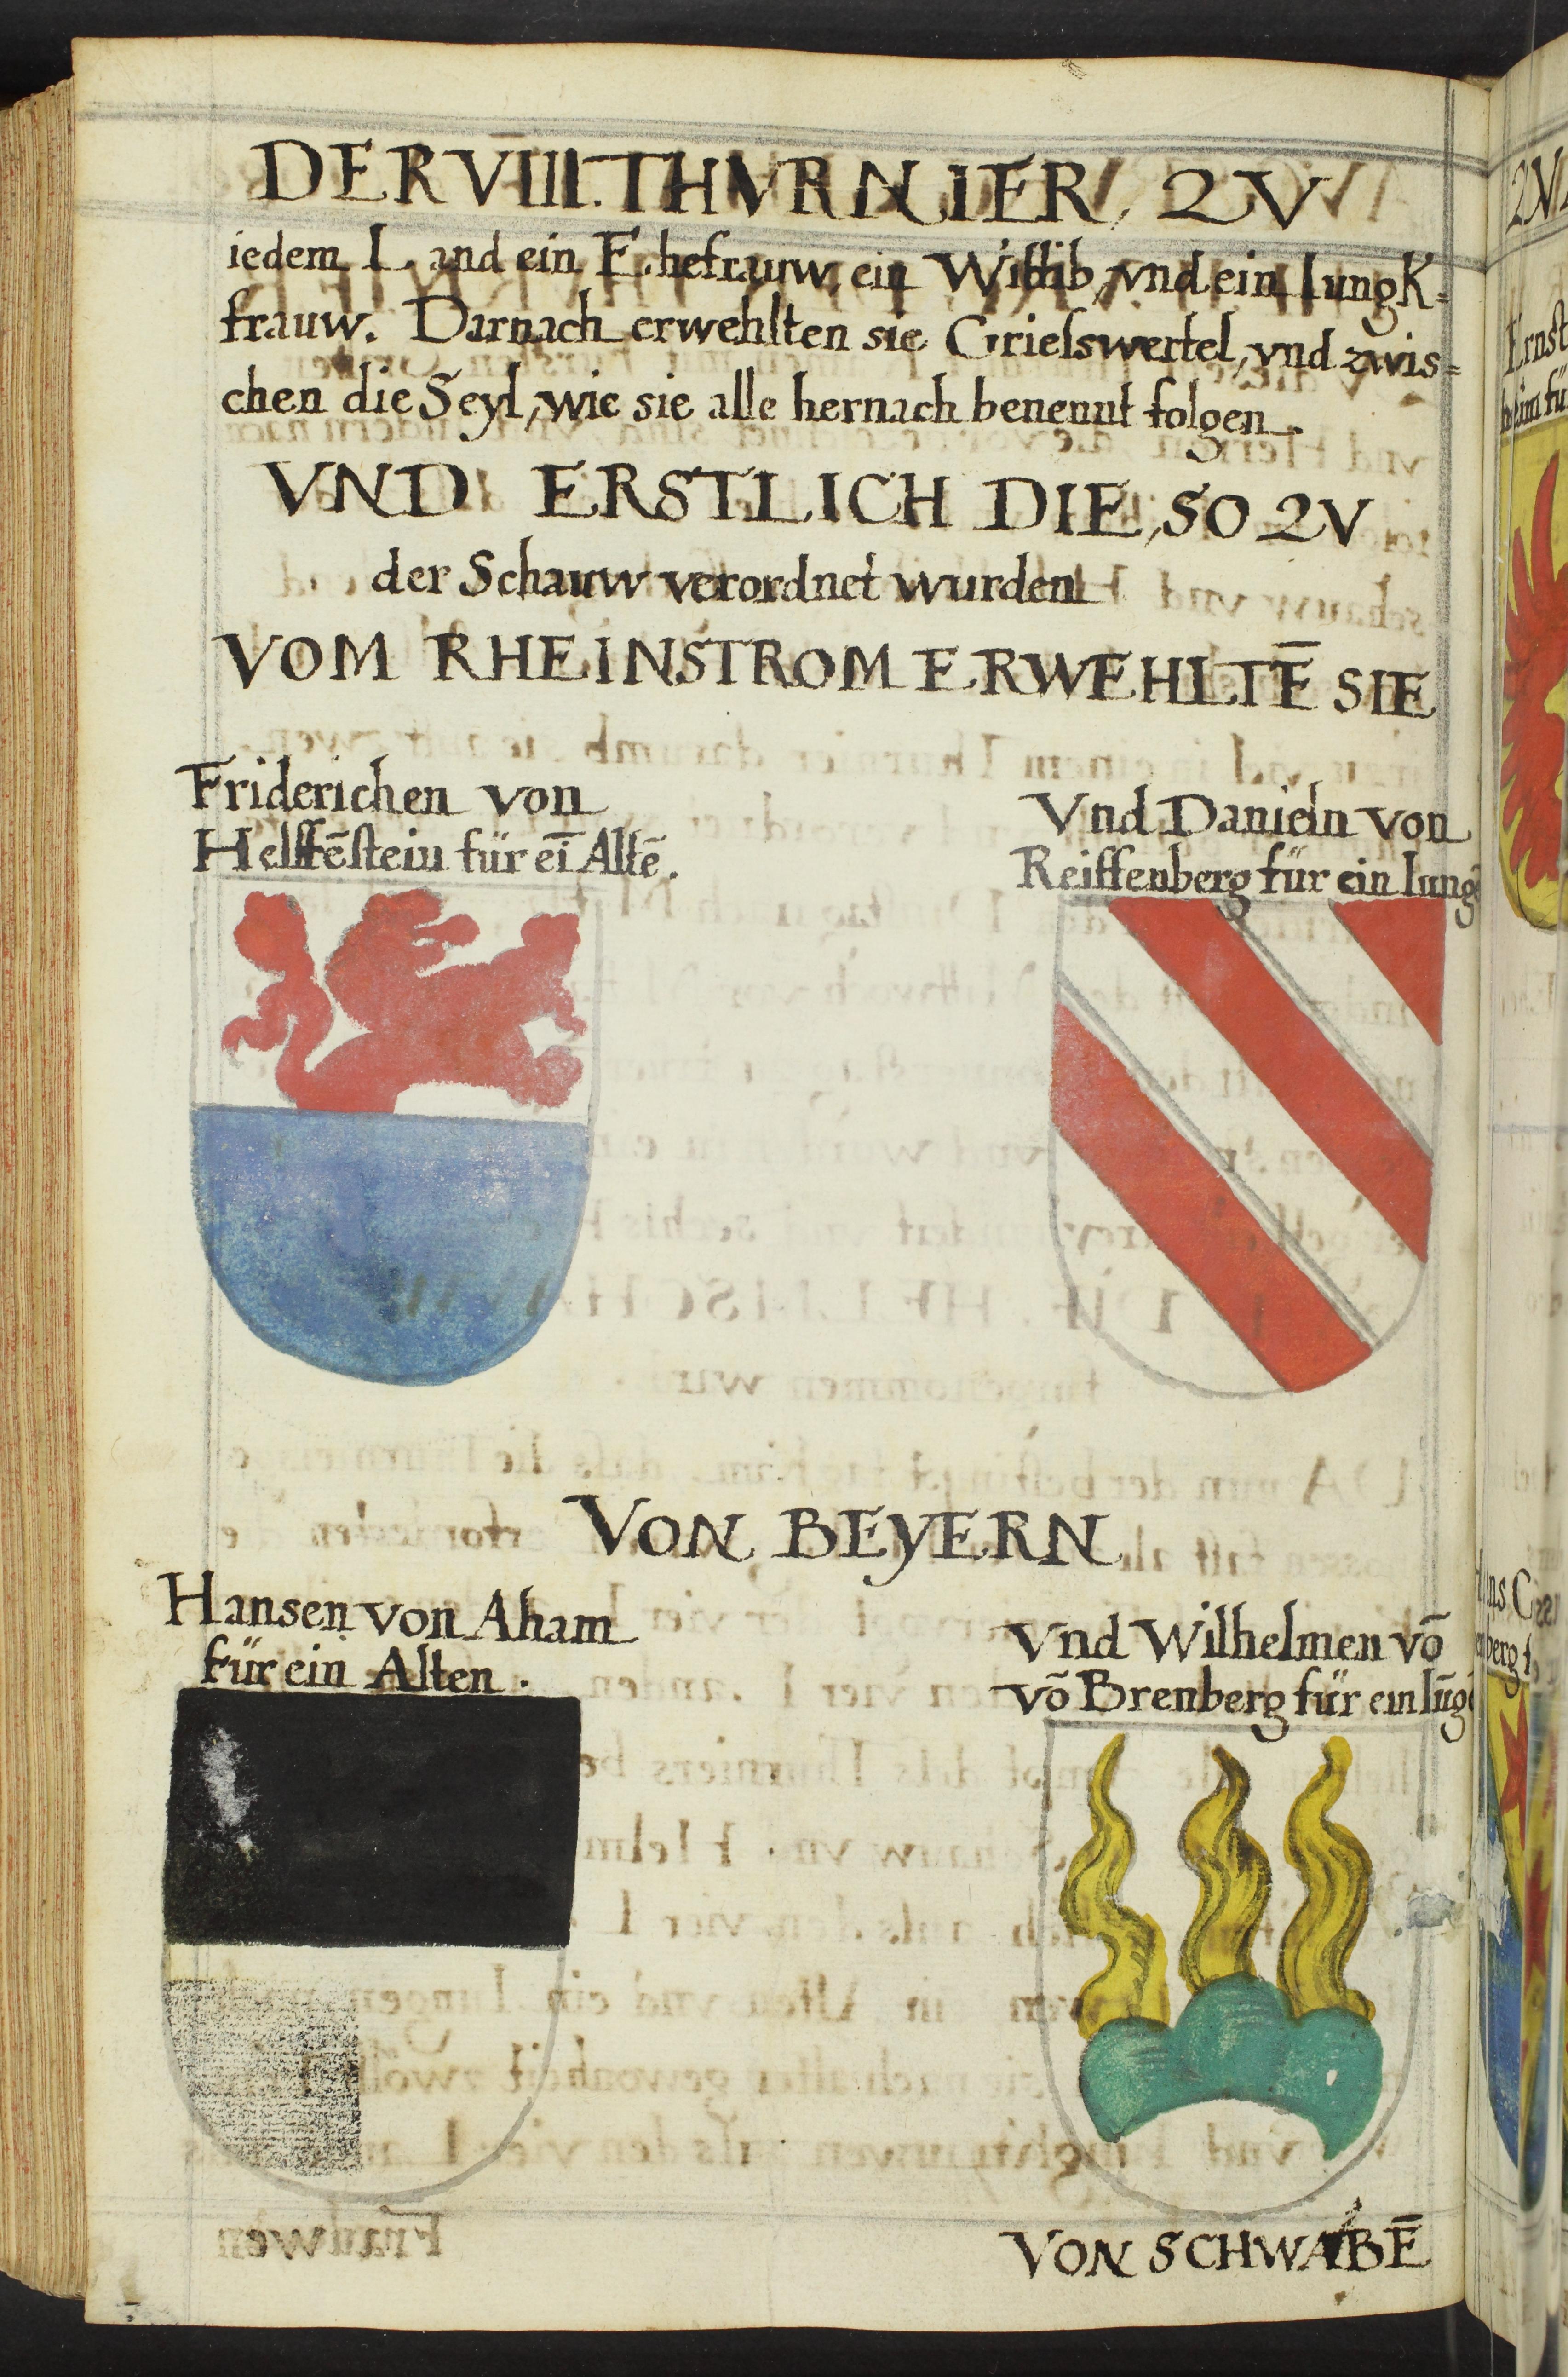 DER VIII. THVRNIER, ZV
iedem Land ein Ehefrauw, ein Wittib, vnd ein IungK=
frauw. Darnach erwehlten sie Grieſswertel, vnd zwis=
chen die Seyl, wie sie alle hernach benennt folgen.
VND ERSTLICH DIE, SO ZV
der Schauw verordnet wurden
VOM RHEINSTROM ERWEHLTĒ SIE
Friderichen von
Helffēſtein für eī Altē.
Vnd Danieln von
Reiffenberg für ein Iung
VON BEYERN
Hansen von Aham
für ein Alten.
Vnd Wilhelmen vō
vō Brenberg für ein Iūg
VON SCHWABĒ
Ernst